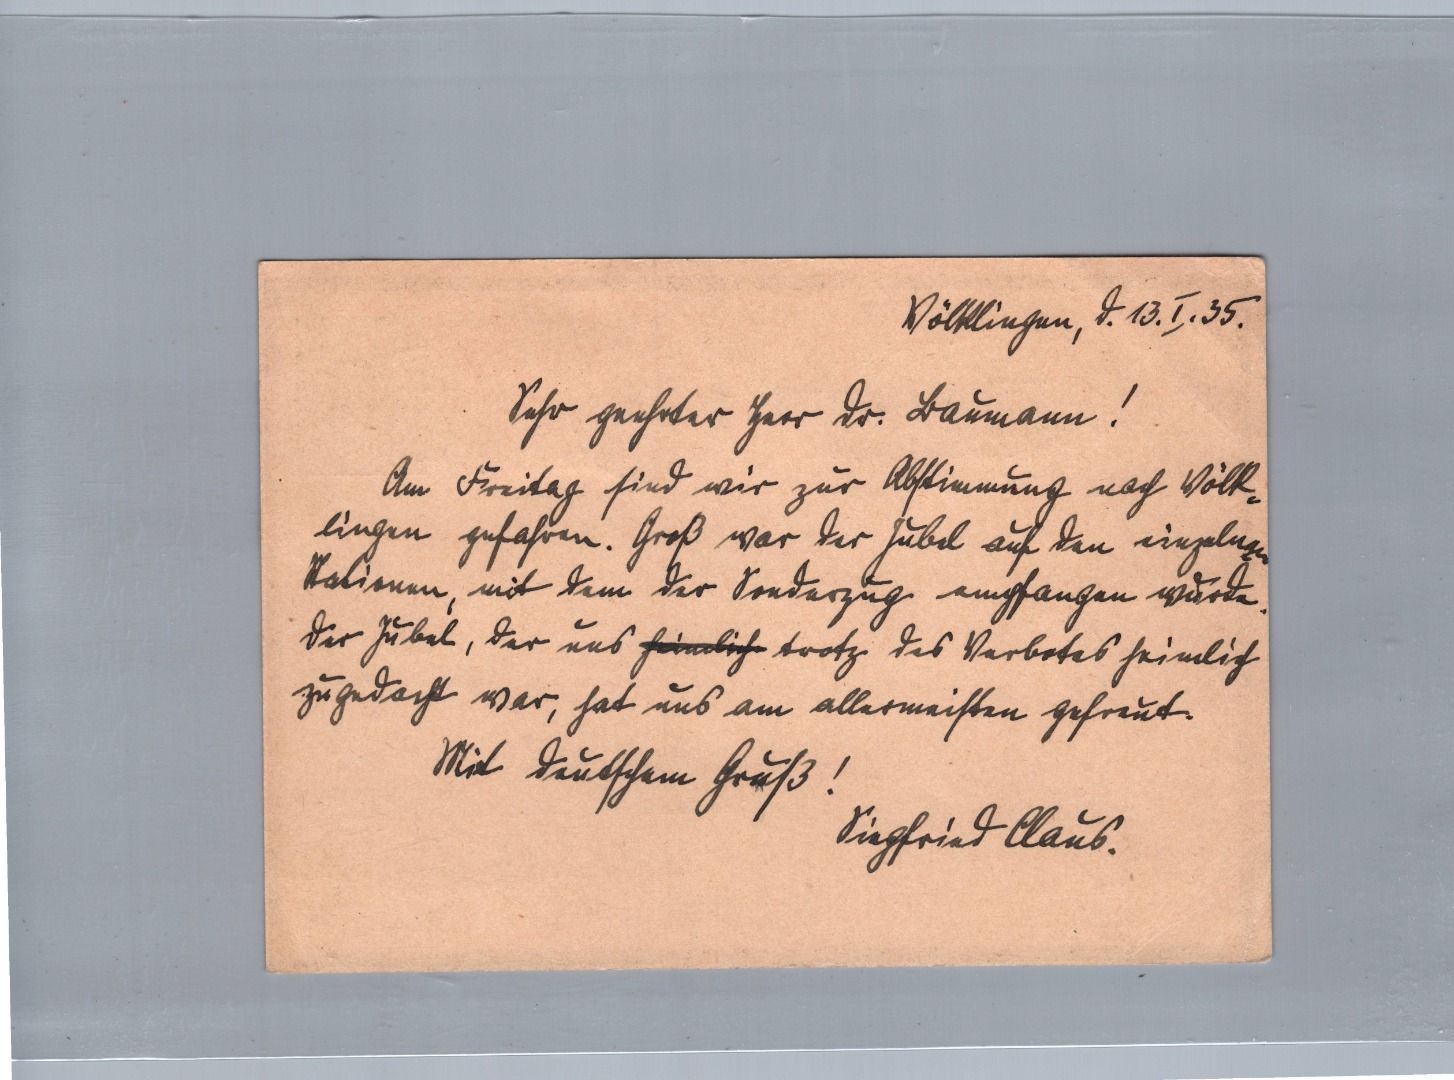 Völklingen, d. 13. I. 35.
Sehr geehrter Herr Dr. Baumann!
Am Freitag sind wir zur Abstimmung nach Völk-
lingen gefahren. Groß war der Jubel auf den einzelnen
Stationen, mit dem der Sonderzug empfangen wurde.
Der Jubel, der uns heimlich trotz des Verbotes heimlich
zugedacht war, hat uns am allermeisten gefreut.
Mit deutschem Gruß!
Siegfried Claus.